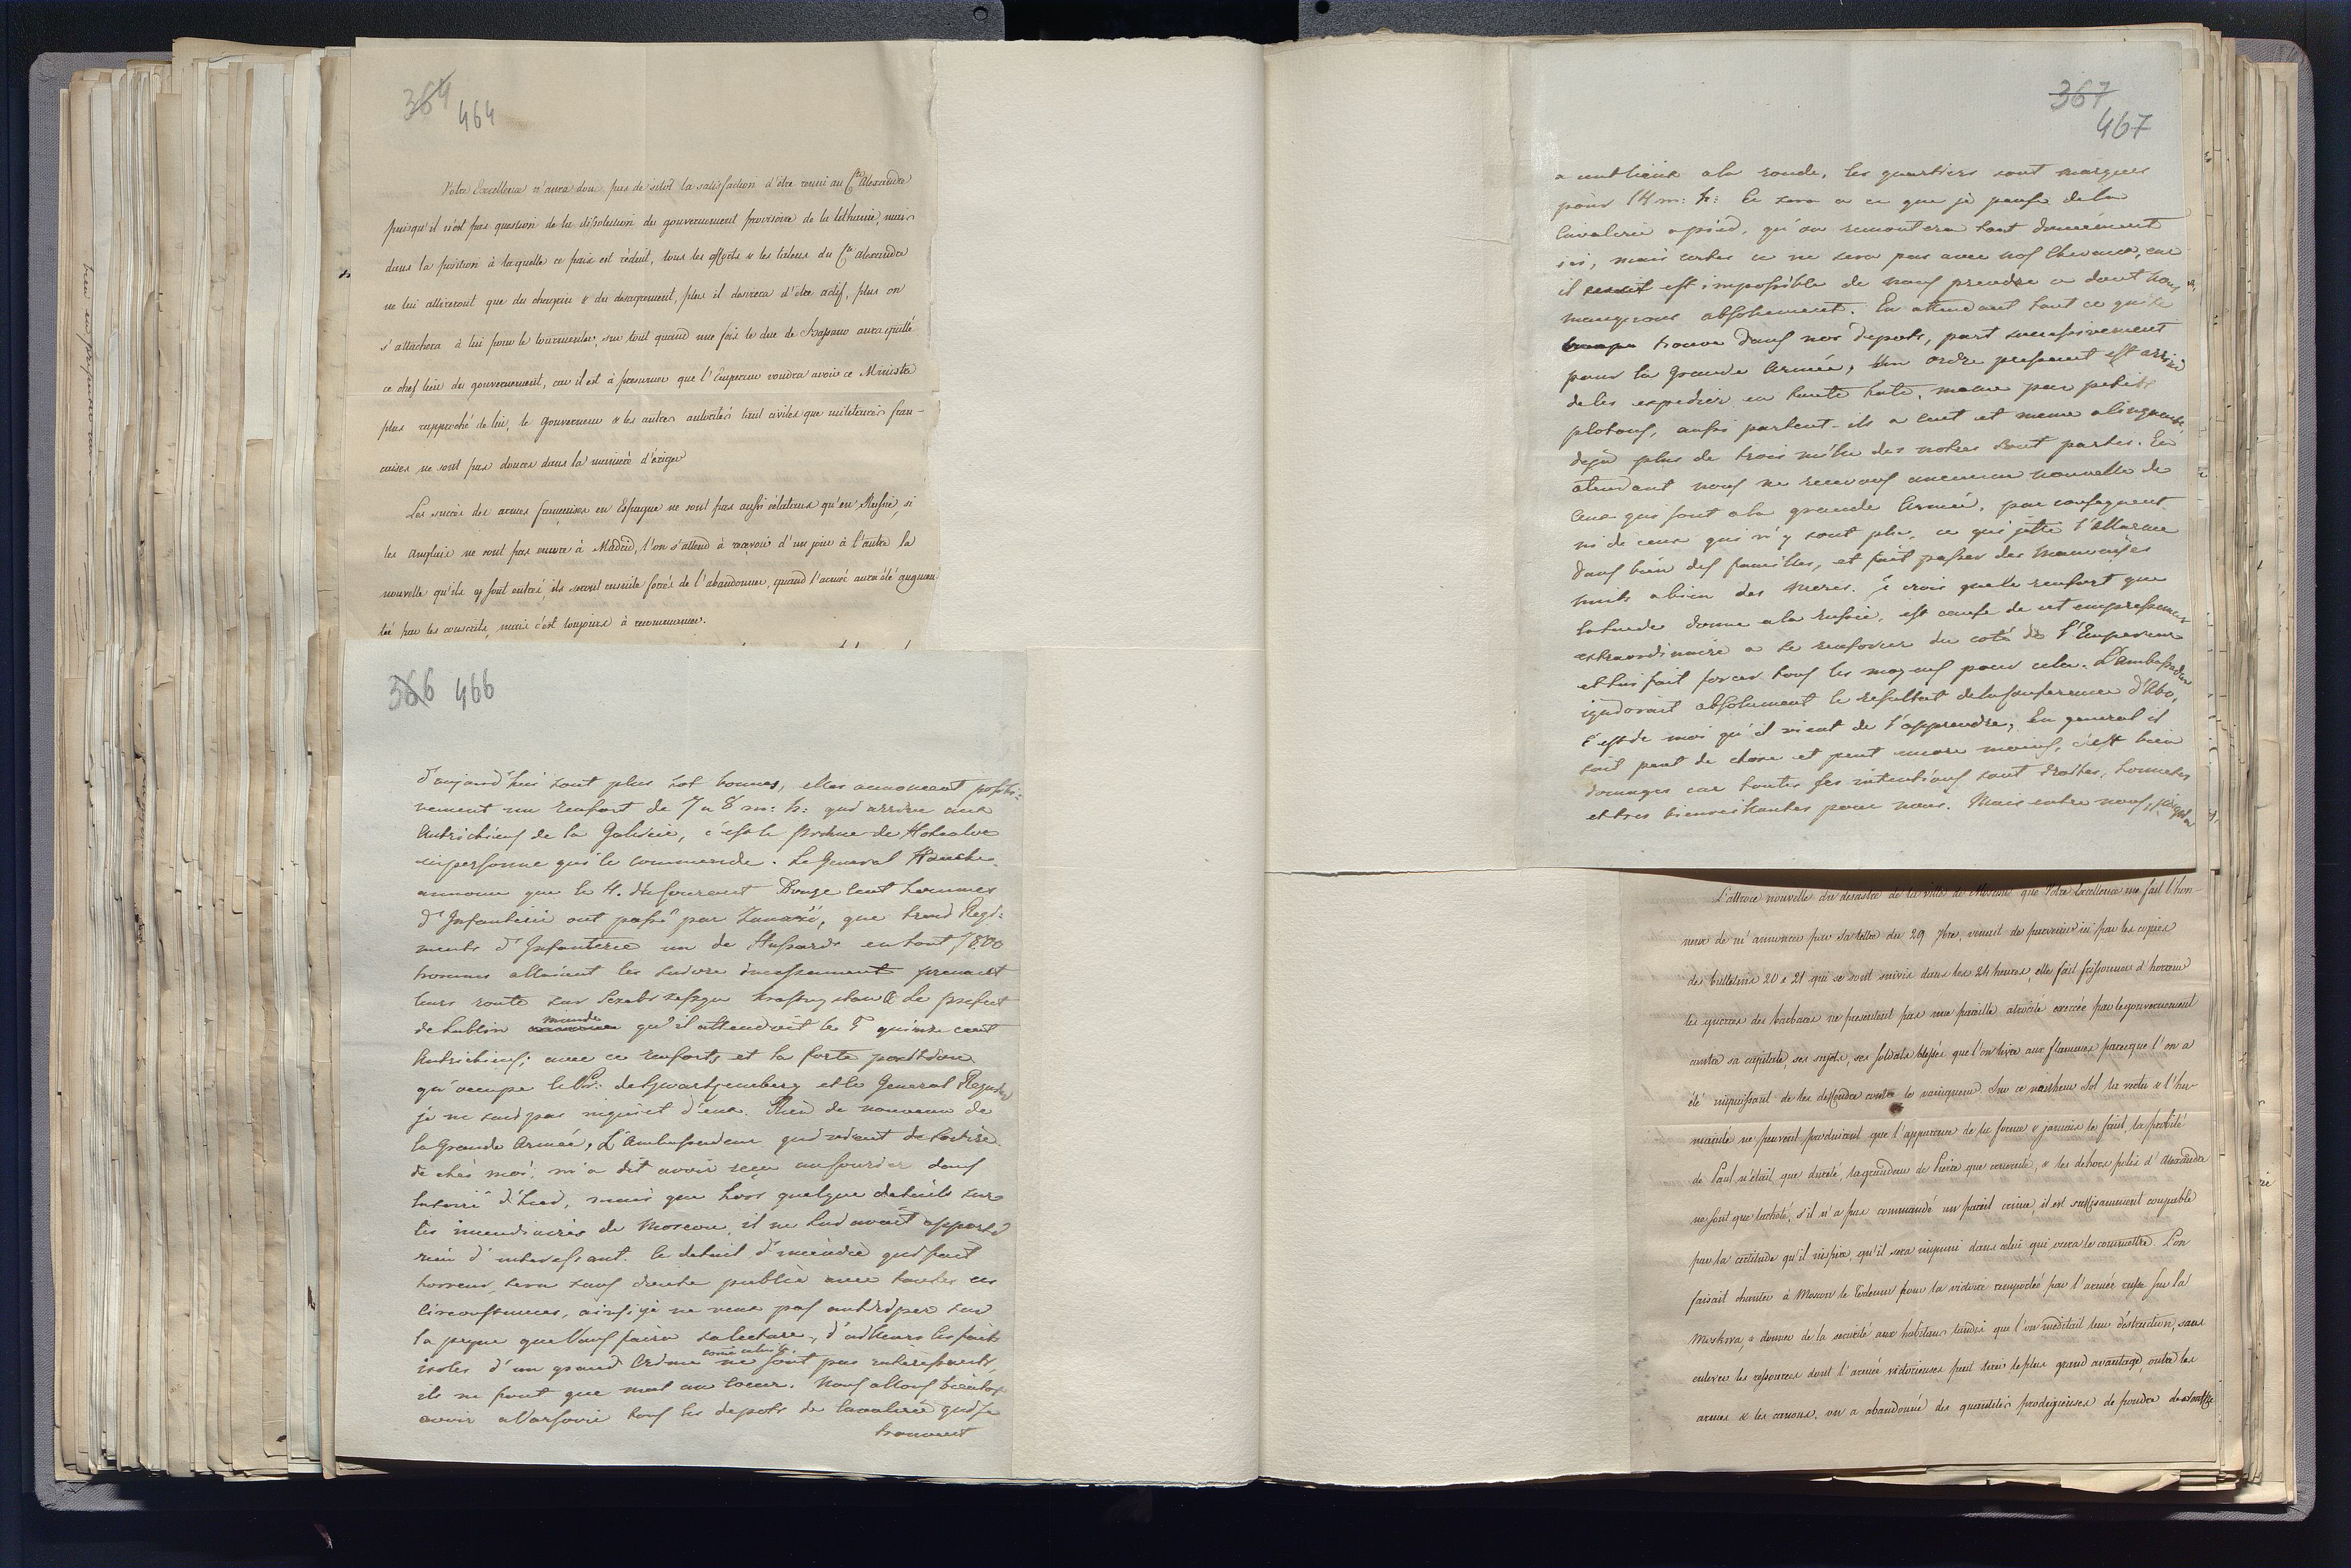 364 464
Votre Excellence n'aura donc pas de sitot la satisfaction d'être reuni au Cte Alexandre
puisqu'il n'est pas question de la dissolution du gouvernement provisoire de la Lithuanie, mais
dans la position à laquelle ce païs est réduit, tous les efforts & les talens du Cte Alexandre
ne lui attireront que du chagrin & du desagrement, plus il desirera d'être actif, plus on
s'attachera à lui pour le tourmenter, sur tout quand une fois le duc de Bassano aura quitté
ce chef lieu du gouvernement, car il est à presumer que l'Empereur voudra avoir ce Ministre
plus rapproché de lui, le Gouverneur & les autres autorités tant civiles que militaires fran-
caises ne sont pas douces dans la manière d'exiger
Les succès des armes françaises en Espagne ne sont pas aussi éclatans qu'en Russie, si
les Anglais ne sont pas encore à Madrid, l'on s'attend à recevoir d'un jour à l'autre la
nouvelle qu'ils y sont entrés, ils seront ensuite forcés de l'abandonner, quand l'armée aura été augmen-
tée par les conscrits, mais c'est toujours à recommencer.
366 466
d'aujourd'hui sont plus tot bonnes, elles annoncent positi-
vement un renfort de 7 a 8 m: h: qui arrive aux
Autrichiens de la Galicie, c'est le Prince de
en personne qui le commende. Le General
annonce que le 4. du courant Douze cent hommes
d'Infanterie ont passé par Zamosc, que trois Regi-
ments d'Infanterie un de Hussards en tout 7800
hommes allaient les suivre incessamment prenant
leurs route sur Le prefect
de Lublin mande qu'il attendoit le 5 quinze cent
Autrichiens; avec ce renforts et la forte position
qu'occupe le Pr: de Schwartzenberg et le General Regnier
je ne suis pas inquiet d'eux. Rien de nouveau de
la Grande Armée, L'Ambassadeur qui vient de sortire
de chés moi, m'a dit avoir reçu un courier dans
la soiré d'hier, mais que hors quelque details sur
les incendiaires de Moscou, il ne lui avait apporté
rien d'interessant. le detail d'incendie qui fait
horreur, sera sans doute publié avec toutes ces
circonstances, ainsi je ne veux pas anticiper sur
la peine que Vous faira sa lecture, d'ailleurs les faits
isolés d'un grand Crime come celui la. ne sont pas interessants,
ils ne font que mal au coeur. Nous allons bientot
avoir a Varsovie tous les depots de Cavalerie qui se
trouvent
367
467
a cent lieux a la ronde, les quartiers sont marqués
pour 14 m: h: Ce sera a ce que je pense de la
Cavalerie a pied, qu'on remontera tout doucement
ici, mais certes ce ne sera pas avec nos Chevaux, car
il est impossible de nous prendre ce dont nous
manquons absolument. En attendant tout ce qui se
trouve dans nos depots, part successivement
pour la Grande Armée, Un ordre pressant est arrivé
de les expedier en toute hate, meme par petits
plotons, aussi partent-ils a cent et meme a cinquante,
deja plus de trois mille des notres sont partis. En
atendant nous ne recevons aucune nouvelle de
Ceux qui sont a la grande Armée, par consequent
ni de ceux qui n'y sont plus, ce qui jette l'Allarme
dans bien des familles, et fait passer des mauvaises
nuits a bien des meres. Je crois que le renfort que
la Suede donne a la russie, est cause de cet empressement
extraordinaire a se renforcer du coté de l'Empereur
et lui fait forcer tous les moyens pour cela. L'ambassadeur
ignorait absolument le resultat de la Conference d'Abo,
c'est de moi qu'il vient de l'apprendre, En general il
sait peut de chose et peut encore moins, c'est bien
domages car toutes ses intentions sont droites, honnetes
et tres bienveillantes pour nous. Mais entre nous,
L'atroce nouvelle du desastre de la ville de Moscou que Votre Excellence me fait l'hon-
neur de m'annoncer par sa lettre du 29 7bre, venait de parvenir ici par les copies
des bulletins 20 & 21 qui se sont suivis dans les 24 heures, elle fait frissonner d'horreur
les guerres des barbares ne presentent pas une pareille atrocité exercée par le gouvernement
contre sa capitale, ses sujets, ses soldats blessés que l'on livre aux flammes parceque l'on a
été impuissant de les deffendre contre le vainqueur Sur ce malheureux Sol la vertu & l'hu-
manité ne peuvent produire que l'apparence de la fleur & jamais le fruit, la probité
de Paul n'était que dureté, la grandeur de Pierre que cruauté, & les dehors polis d'Alexandre
ne sont que lacheté, s'il n'a pas commandé un pareil crime, il est suffisamment coupable
par la certitude qu'il inspire, qu'il sera impuni dans celui qui osera le commettre L'on
faisait chanter à Moscou le Tedeum pour la victoire remportée par l'armée russe sur la
Moskwa, & donner de la securité aux habitans tandis que l'on meditait leur destruction, sans
enlever les ressources dont l'armée victorieuse peut tirer le plus grand avantage, outre les
armes & les canons, on a abandonné des quantités prodigieuses de poudre